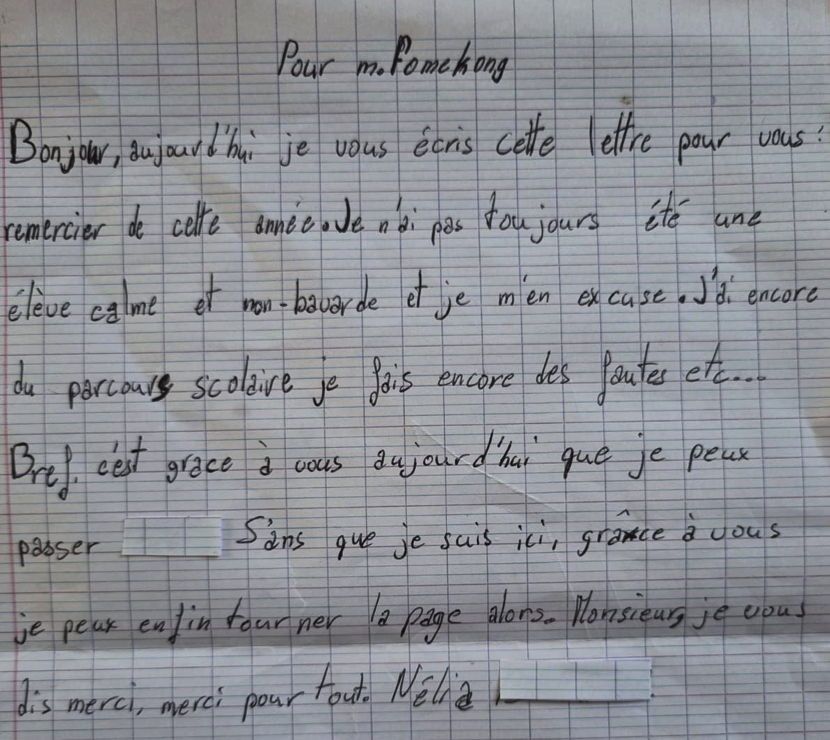 Pour m. Fomekong
Bonjour, aujourd'hui je vous écris cette lettre pour vous :
remercier de cette année. Je n'ai pas toujours été une
élève calme et non-bavarde et je m'en excuse. J'ai encore
du parcours scolaire je fais encore des fautes etc...
Bref, c'est grace à vous aujourd'hui que je peux
passer Sans que je suis ici, grâce à vous
je peux enfin tourner la page alors. Monsieur, je vous
dis merci, merci pour tout. Nélia